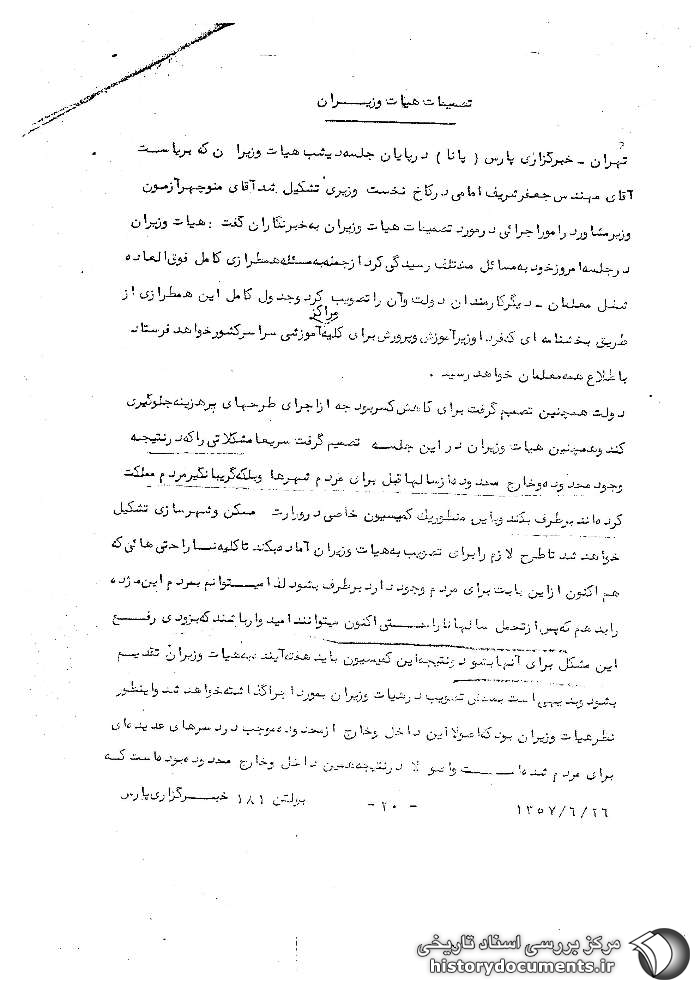 تصمیمات هیات وزیـــران
تهران - خبرگزاری پارس ( پانا ) درپایان جلسه دیشب هیات وزیران که بریاست
آقای مهندس جعفر شریف امامی درکاخ نخست وزیری تشکیل شد آقای منوچهرآزمون
وزیرمشاور درامور اجرائی درمورد تصمیمات هیات وزیران به خبرنگاران گفت : هیات وزیران
درجلسه امروز خود به مسائل مختلف رسیدگی کرد ازجمله به مسئله همطرازی کامل فوق العاده
شغل معلمان - دیگرکارمندان دولت وآن را تصویب کرد وجدول کامل این همطرازی از
طریق بخشنامه ای که فردا وزیرآموزش وپرورش برای کلیه مراکز آموزشی سراسر کشورخواهد فرستاد
باطلاع همه معلمان خواهد رسید .
دولت همچنین تصمیم گرفت برای کاهش کسربودجه ازاجرای طرحهای پرهزینه جلوگیری
کند وهمچنین هیات وزیران دراین جلسه تصمیم گرفت سریعا مشکلاتی راکه درنتیجه
وجود محدوده وخارج محدوده ازسالها قبل برای مردم شهرها وبلکه گریبانگیر مردم مملکت
کرده اند برطرف بکند وباین منظوریک کمیسیون خاصی دروزارت مسکن وشهرسازی تشکیل
خواهد شد تاطرح لازم را برای تصویب به هیات وزیران آماده بکند تاکلیه ناراحتی هائی که
هم اکنون ازاین بابت برای مردم وجود دارد برطرف بشود لذا میتوانم بمردم این مژده
رابدهم که پس ازتحمل سالها ناراحتی اکنون میتوانند امیدوارباشند که بزودی رفـــع
این مشکل برای آنها بشود ونتیجه این کمیسیون باید هفته آینده به هیات وزیران تقدیم
بشود وبدیهی است بمحض تصویب درهیات وزیران بمورد اجراگذاشته خواهد شد واینطور
نظرهیات وزیران بود که اصولا این داخل وخارج ازمحدوده موجب دردسرهای عدیده ای
برای مردم شده اســـت واصولا درنتیجه همین داخل وخارج محدوده بوده است کـه
۱۳۵۷/۶/۲۶ - ۲۰ - بولتن ۱۸۱ خبـرگزاری پارس
مرکز بررسی اسناد تاریخی
historydocuments.ir